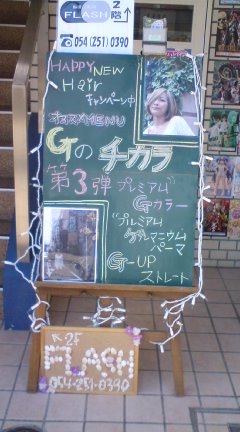 FLASH 2階↑
☎054(251)0390
HAPPY NEW
Hair
キャンペーン中
オススメMENU
Gのチカラ
第3弾 プレミアム
Gカラー
プルミアム
ゲルマニウム
パーマ
G-UP
ストレート
↖2F
FLASH
054-251-0390